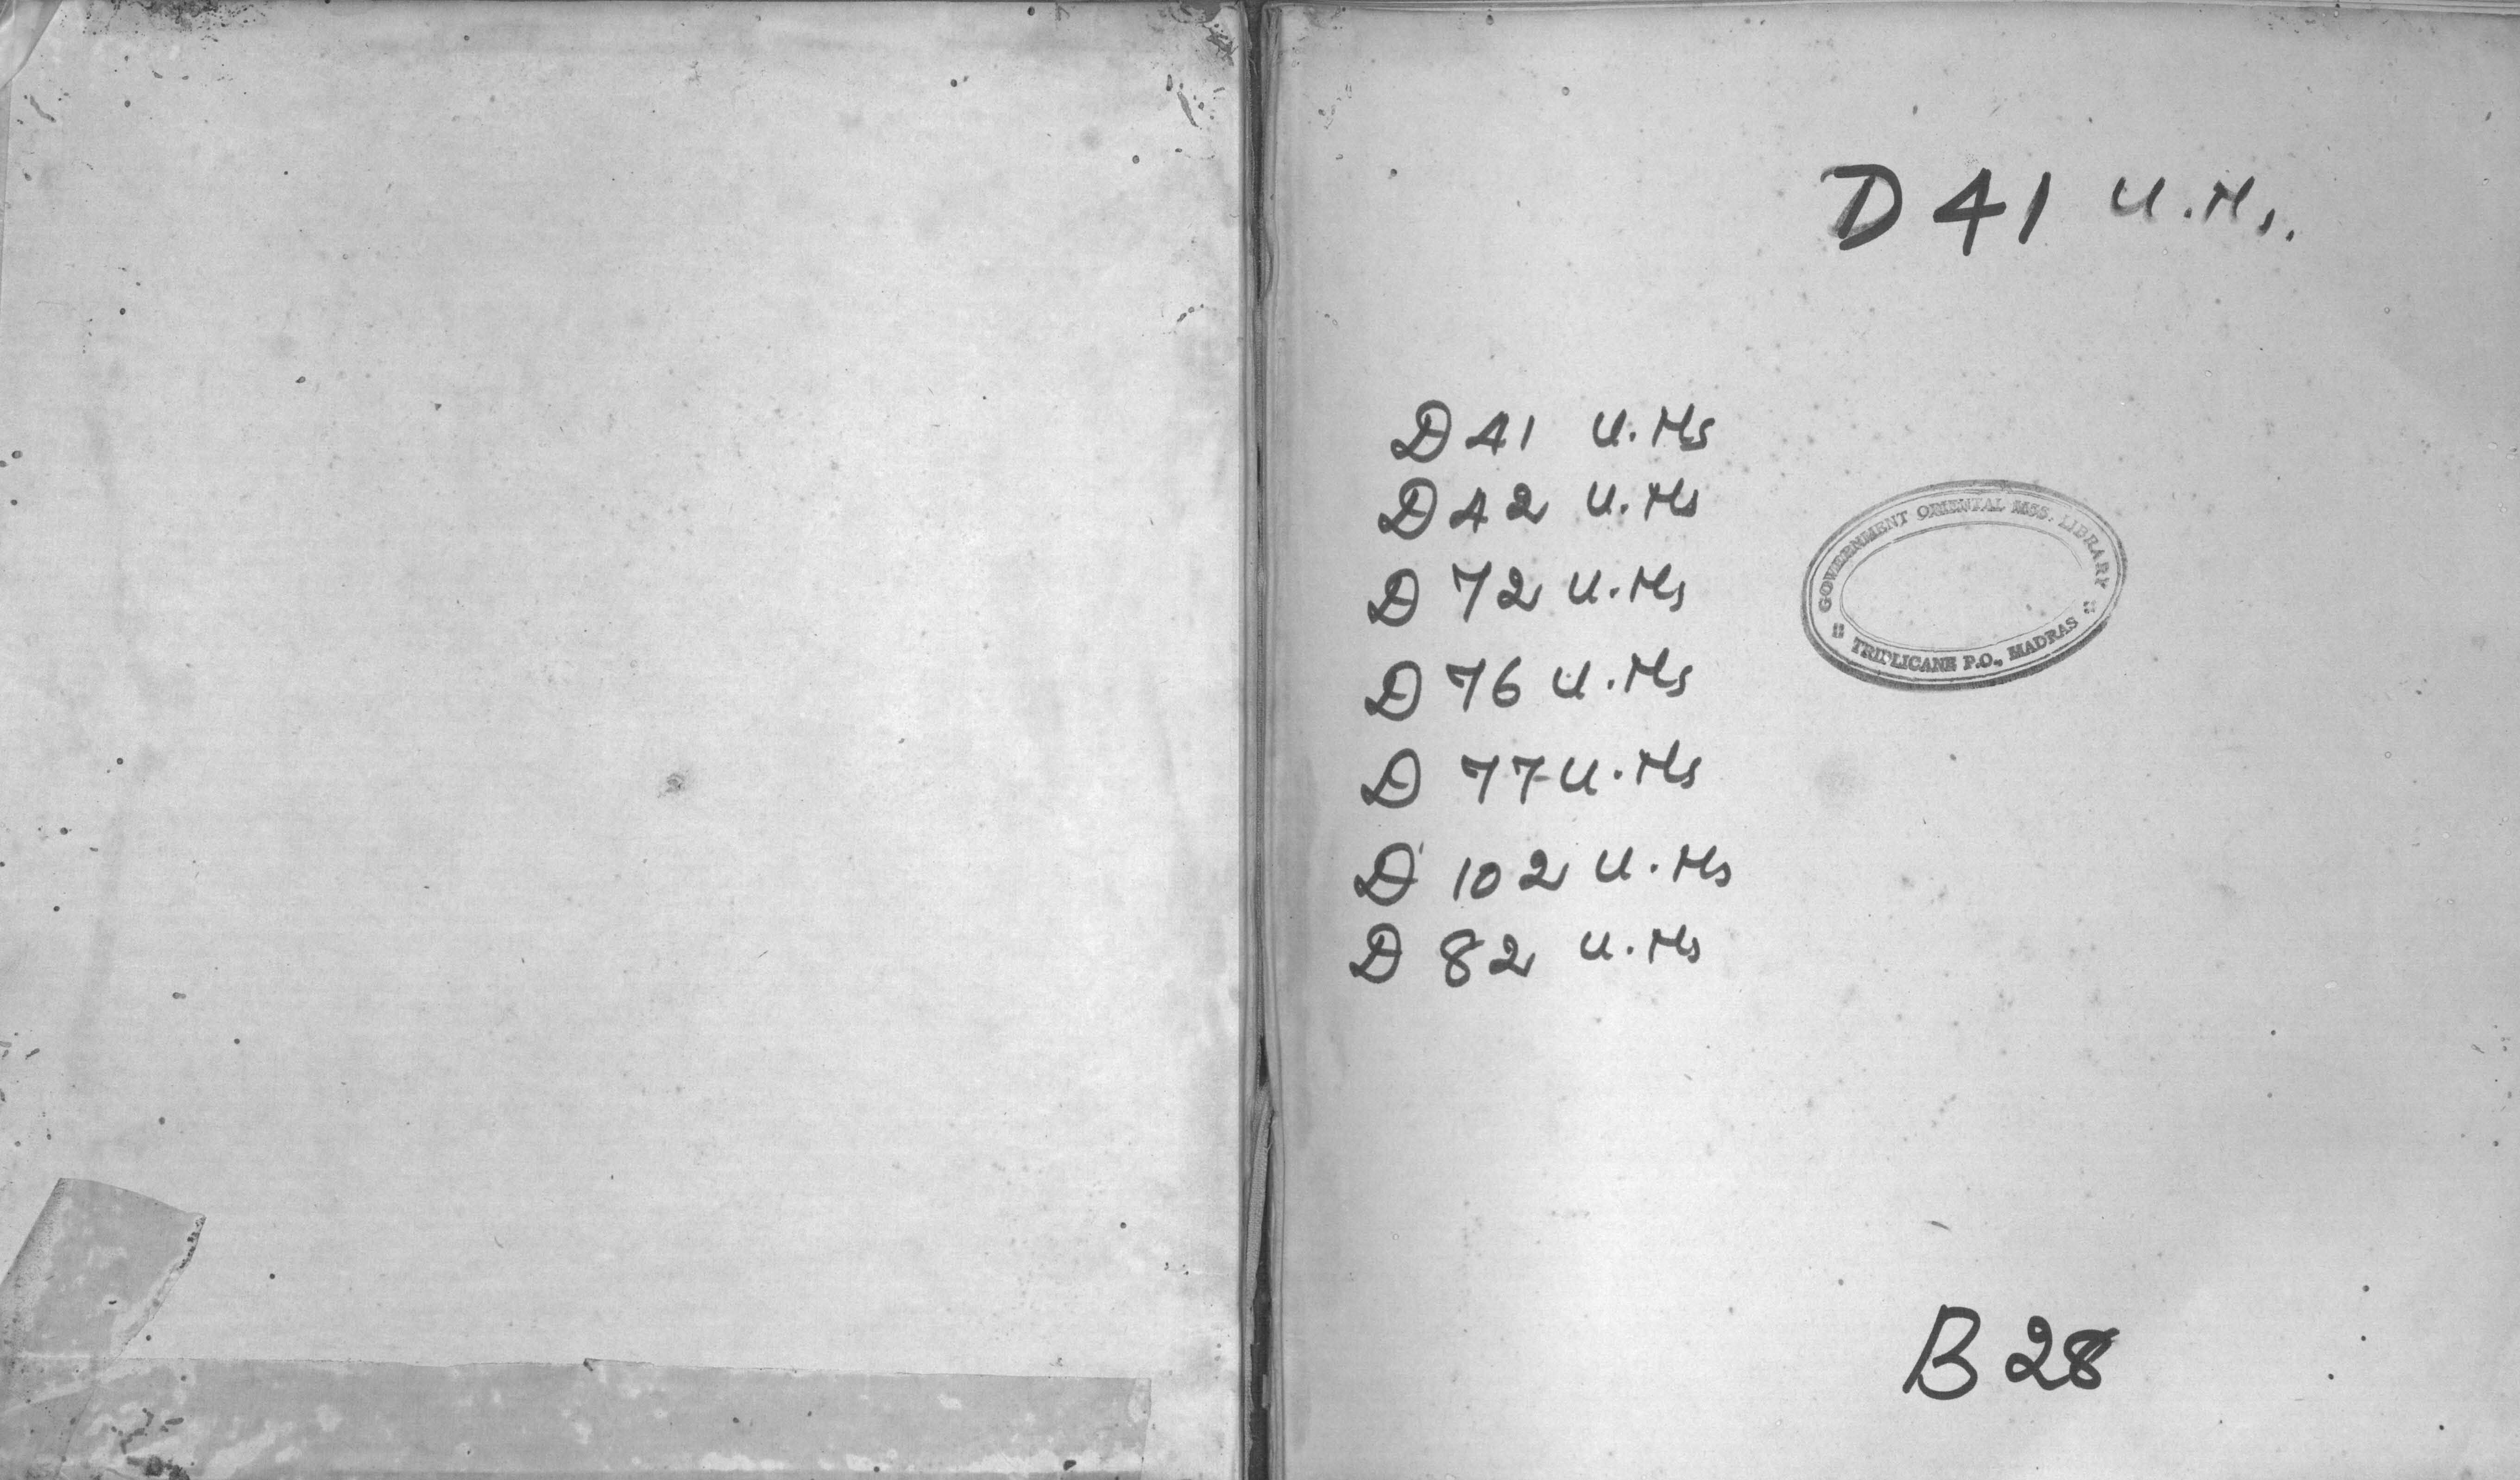 D 41 U.Ms.
D 41 U.Ms
D 42 U.Ms
D 72 U.Ms
D 76 U.Ms
D 77 U.Ms
D 102 U.Ms
D 82 U.Ms
GOVERNMENT ORIENTAL MSS. LIBRARY
TRIPLICANE P.O., MADRAS
B 28